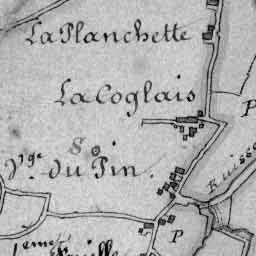 La Planchette
La Coglais
P
V.ge du Pin.
Ruisse
P